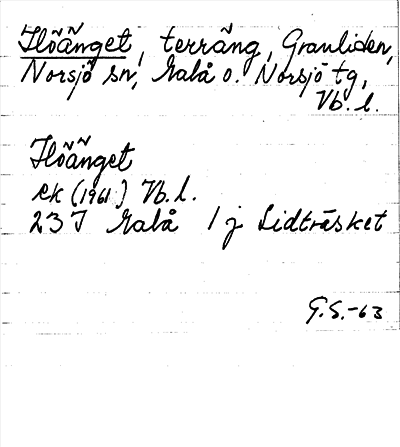 Flöänget, terräng, Granliden,
Norsjö sn, Malå o. Norsjö tg,
Vb. l.
Flöänget
ek (1961) Vb. l.
23 J Malå 1 j Lidträsket
G.S.-63